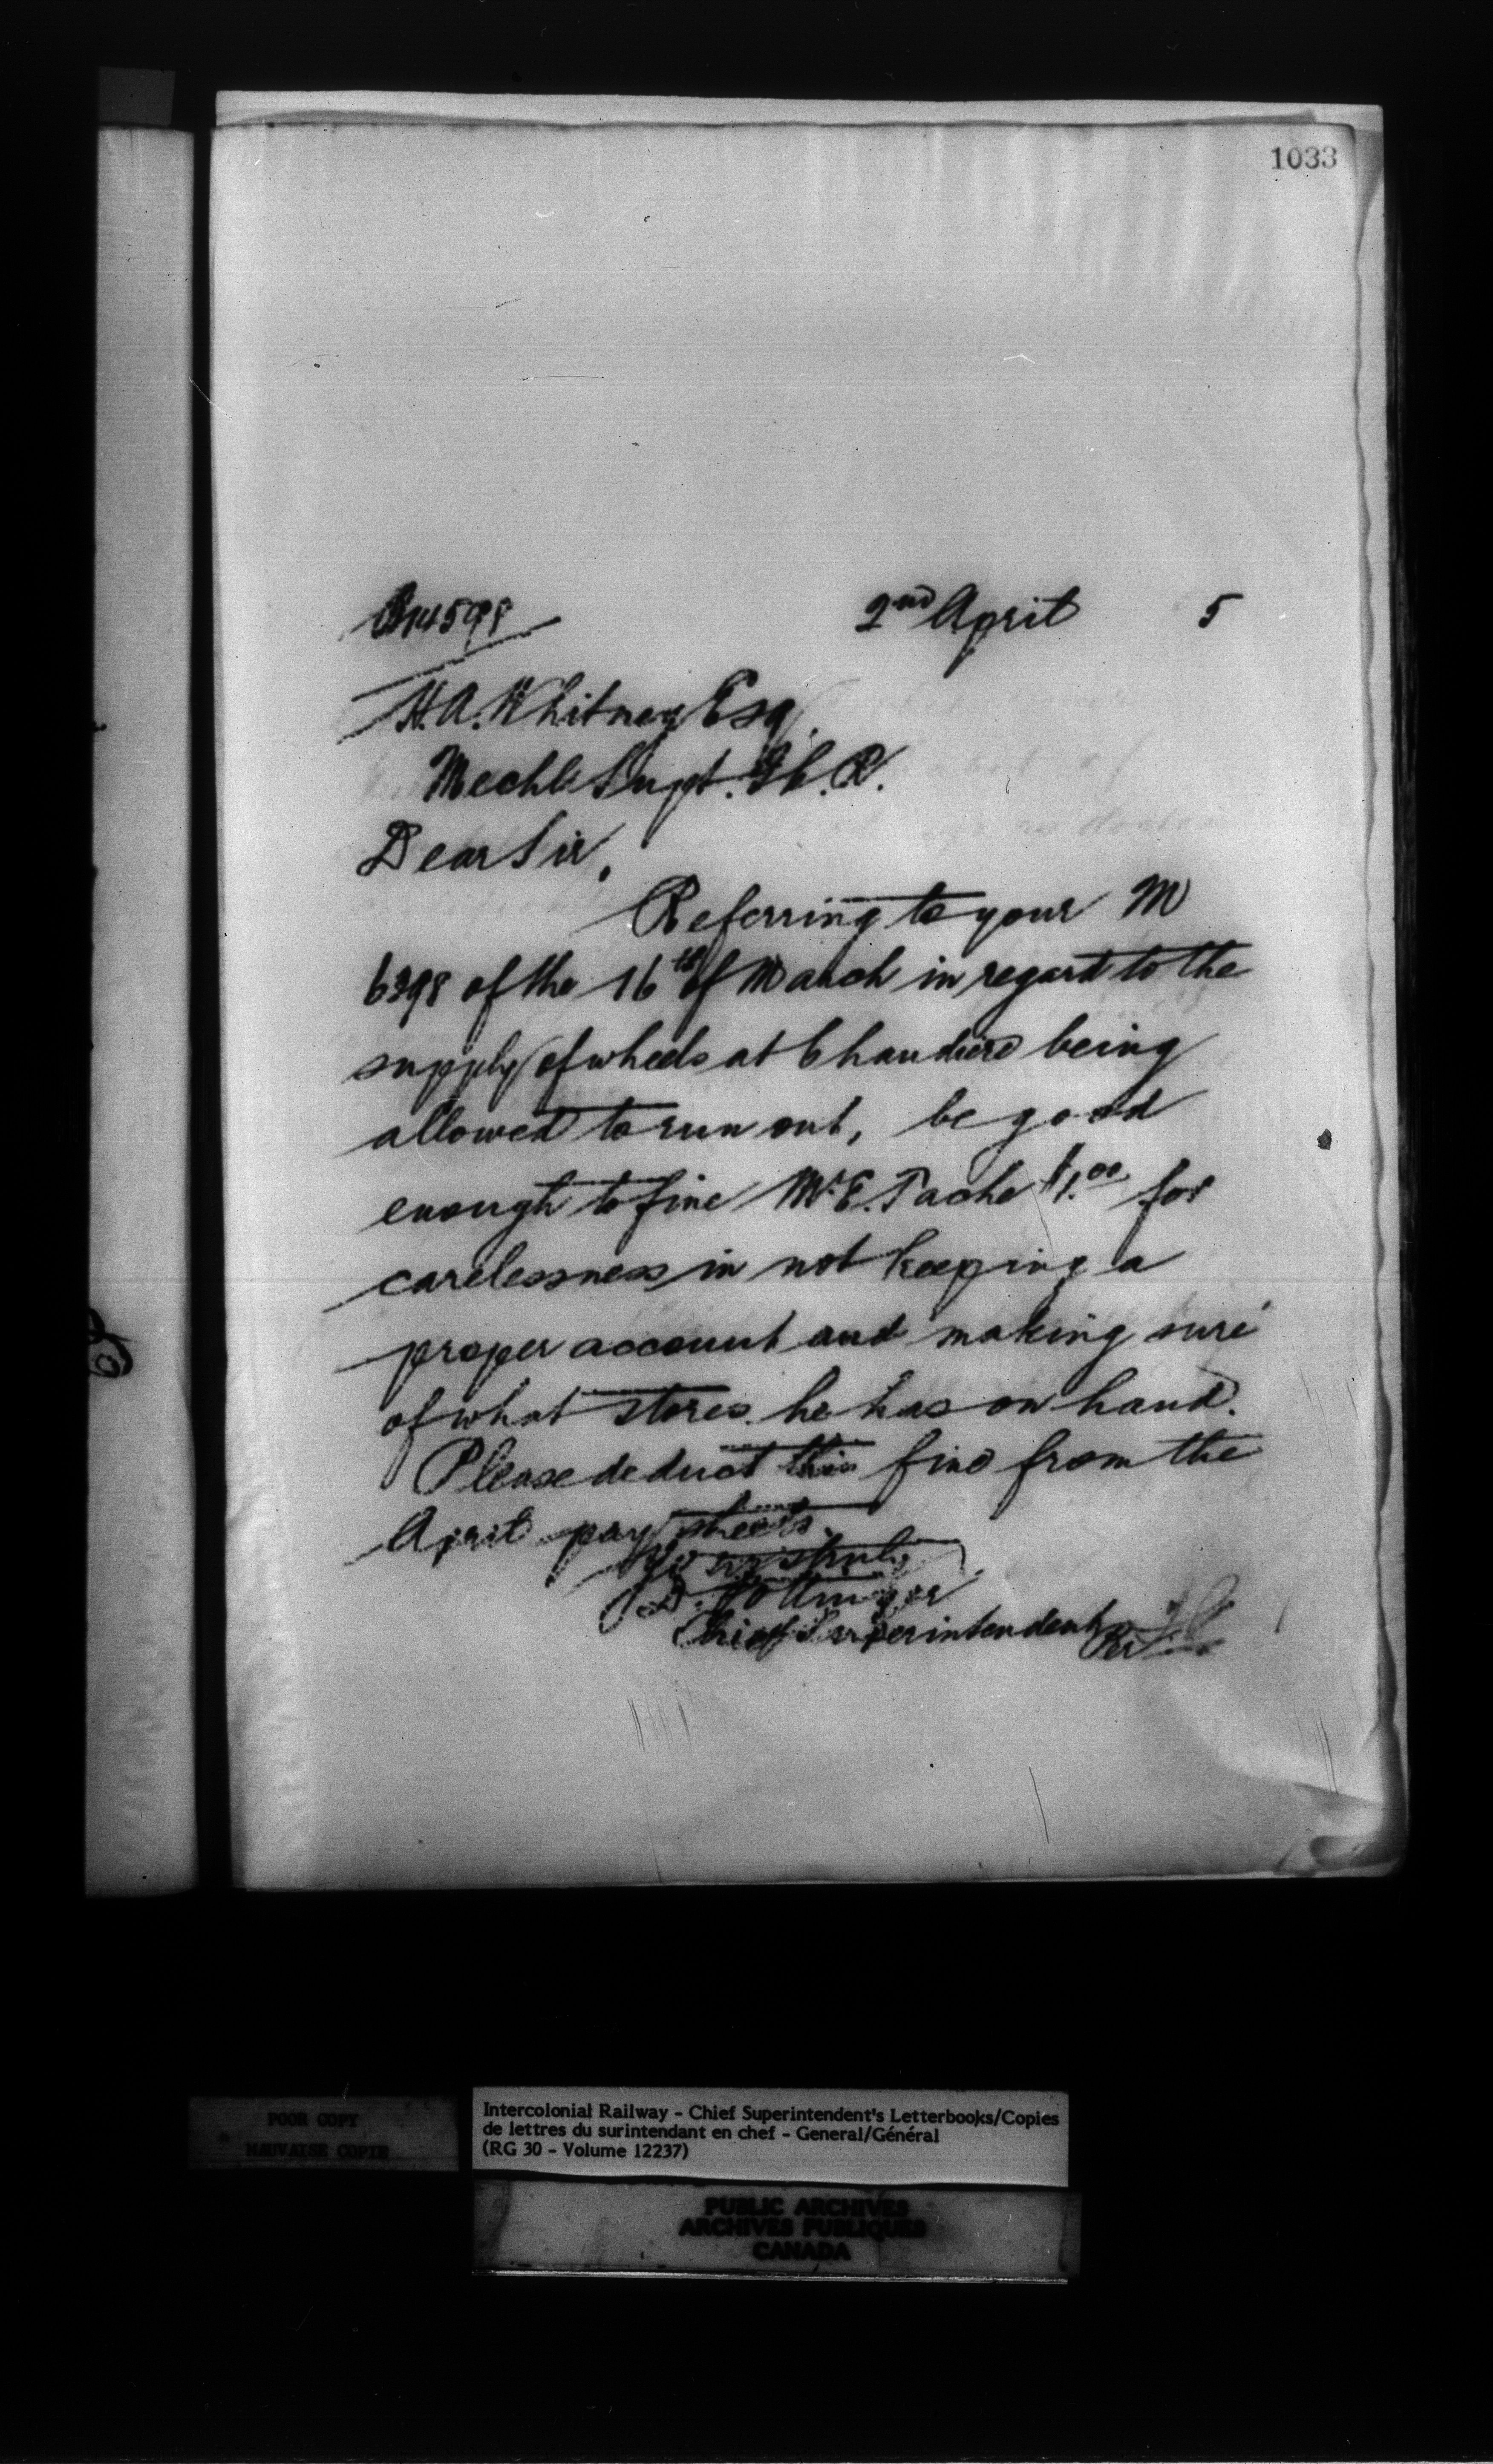 1033
2nd April 5
H. A. Whitney Esq.
Mechl. Supt. I. C. R.
Dear Sir,
Referring to your M
6398 of the 16th of March in regard to the
supply of wheels at Chaudiere being
allowed to run out, be good
enough to fine Mr. E. Tache $1.00 for
carelessness in not keeping a
proper account and making sure
of what stores he has on hand.
Please deduct this fine from the
April pay sheets.
Yours truly
D. Pottinger
Chief Superintendent
Per
POOR COPY
MAUVAISE COPIE
Intercolonial Railway - Chief Superintendent's Letterbooks/Copies
de lettres du surintendant en chef - General/Général
(RG 30 - Volume 12237)
PUBLIC ARCHIVES
ARCHIVES PUBLIQUES
CANADA